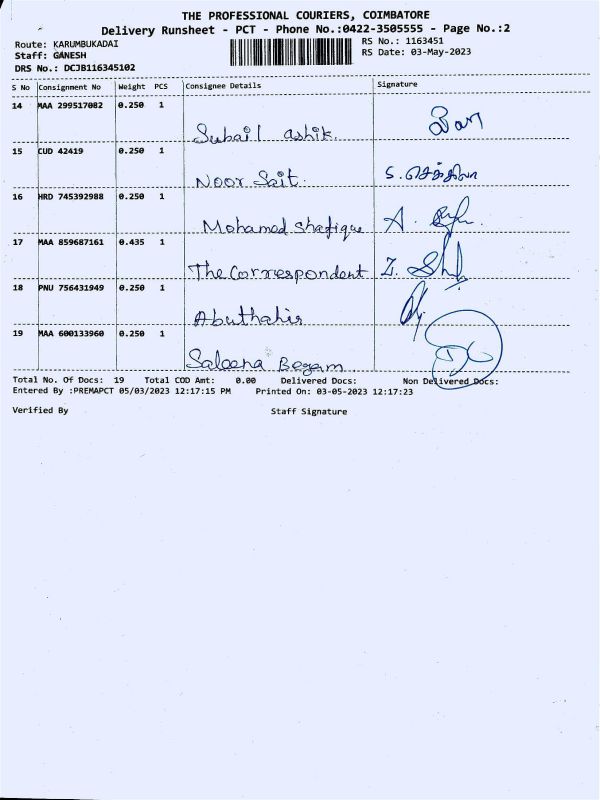 THE PROFESSIONAL COURIERS, COIMBATORE
Delivery Runsheet - PCT - Phone No.:0422-3505555 - Page No.:2
Route: KARUMBUKADAI
RS No.: 1163451
Staff: GANESH
RS Date: 03-May-2023
DRS No.: DCJB116345102
S No Consignment No Weight PCS Consignee Details Signature
14 MAA 299517082 0.250 1
Suhail ashik.
15 CUD 42419 0.250 1
Noor Sait.
16 HRD 745392988 0.250 1
Mohamed Shafique A.
17 MAA 859687161 0.435 1
The Correspondent Z.
18 PNU 756431949 0.250 1
Abuthahir
19 MAA 600133960 0.250 1
Saleena Begam
Total No. Of Docs: 19 Total COD Amt: 0.00 Delivered Docs: Non Delivered Docs:
Entered By :PREMAPCT 05/03/2023 12:17:15 PM Printed On: 03-05-2023 12:17:23
Verified By Staff Signature